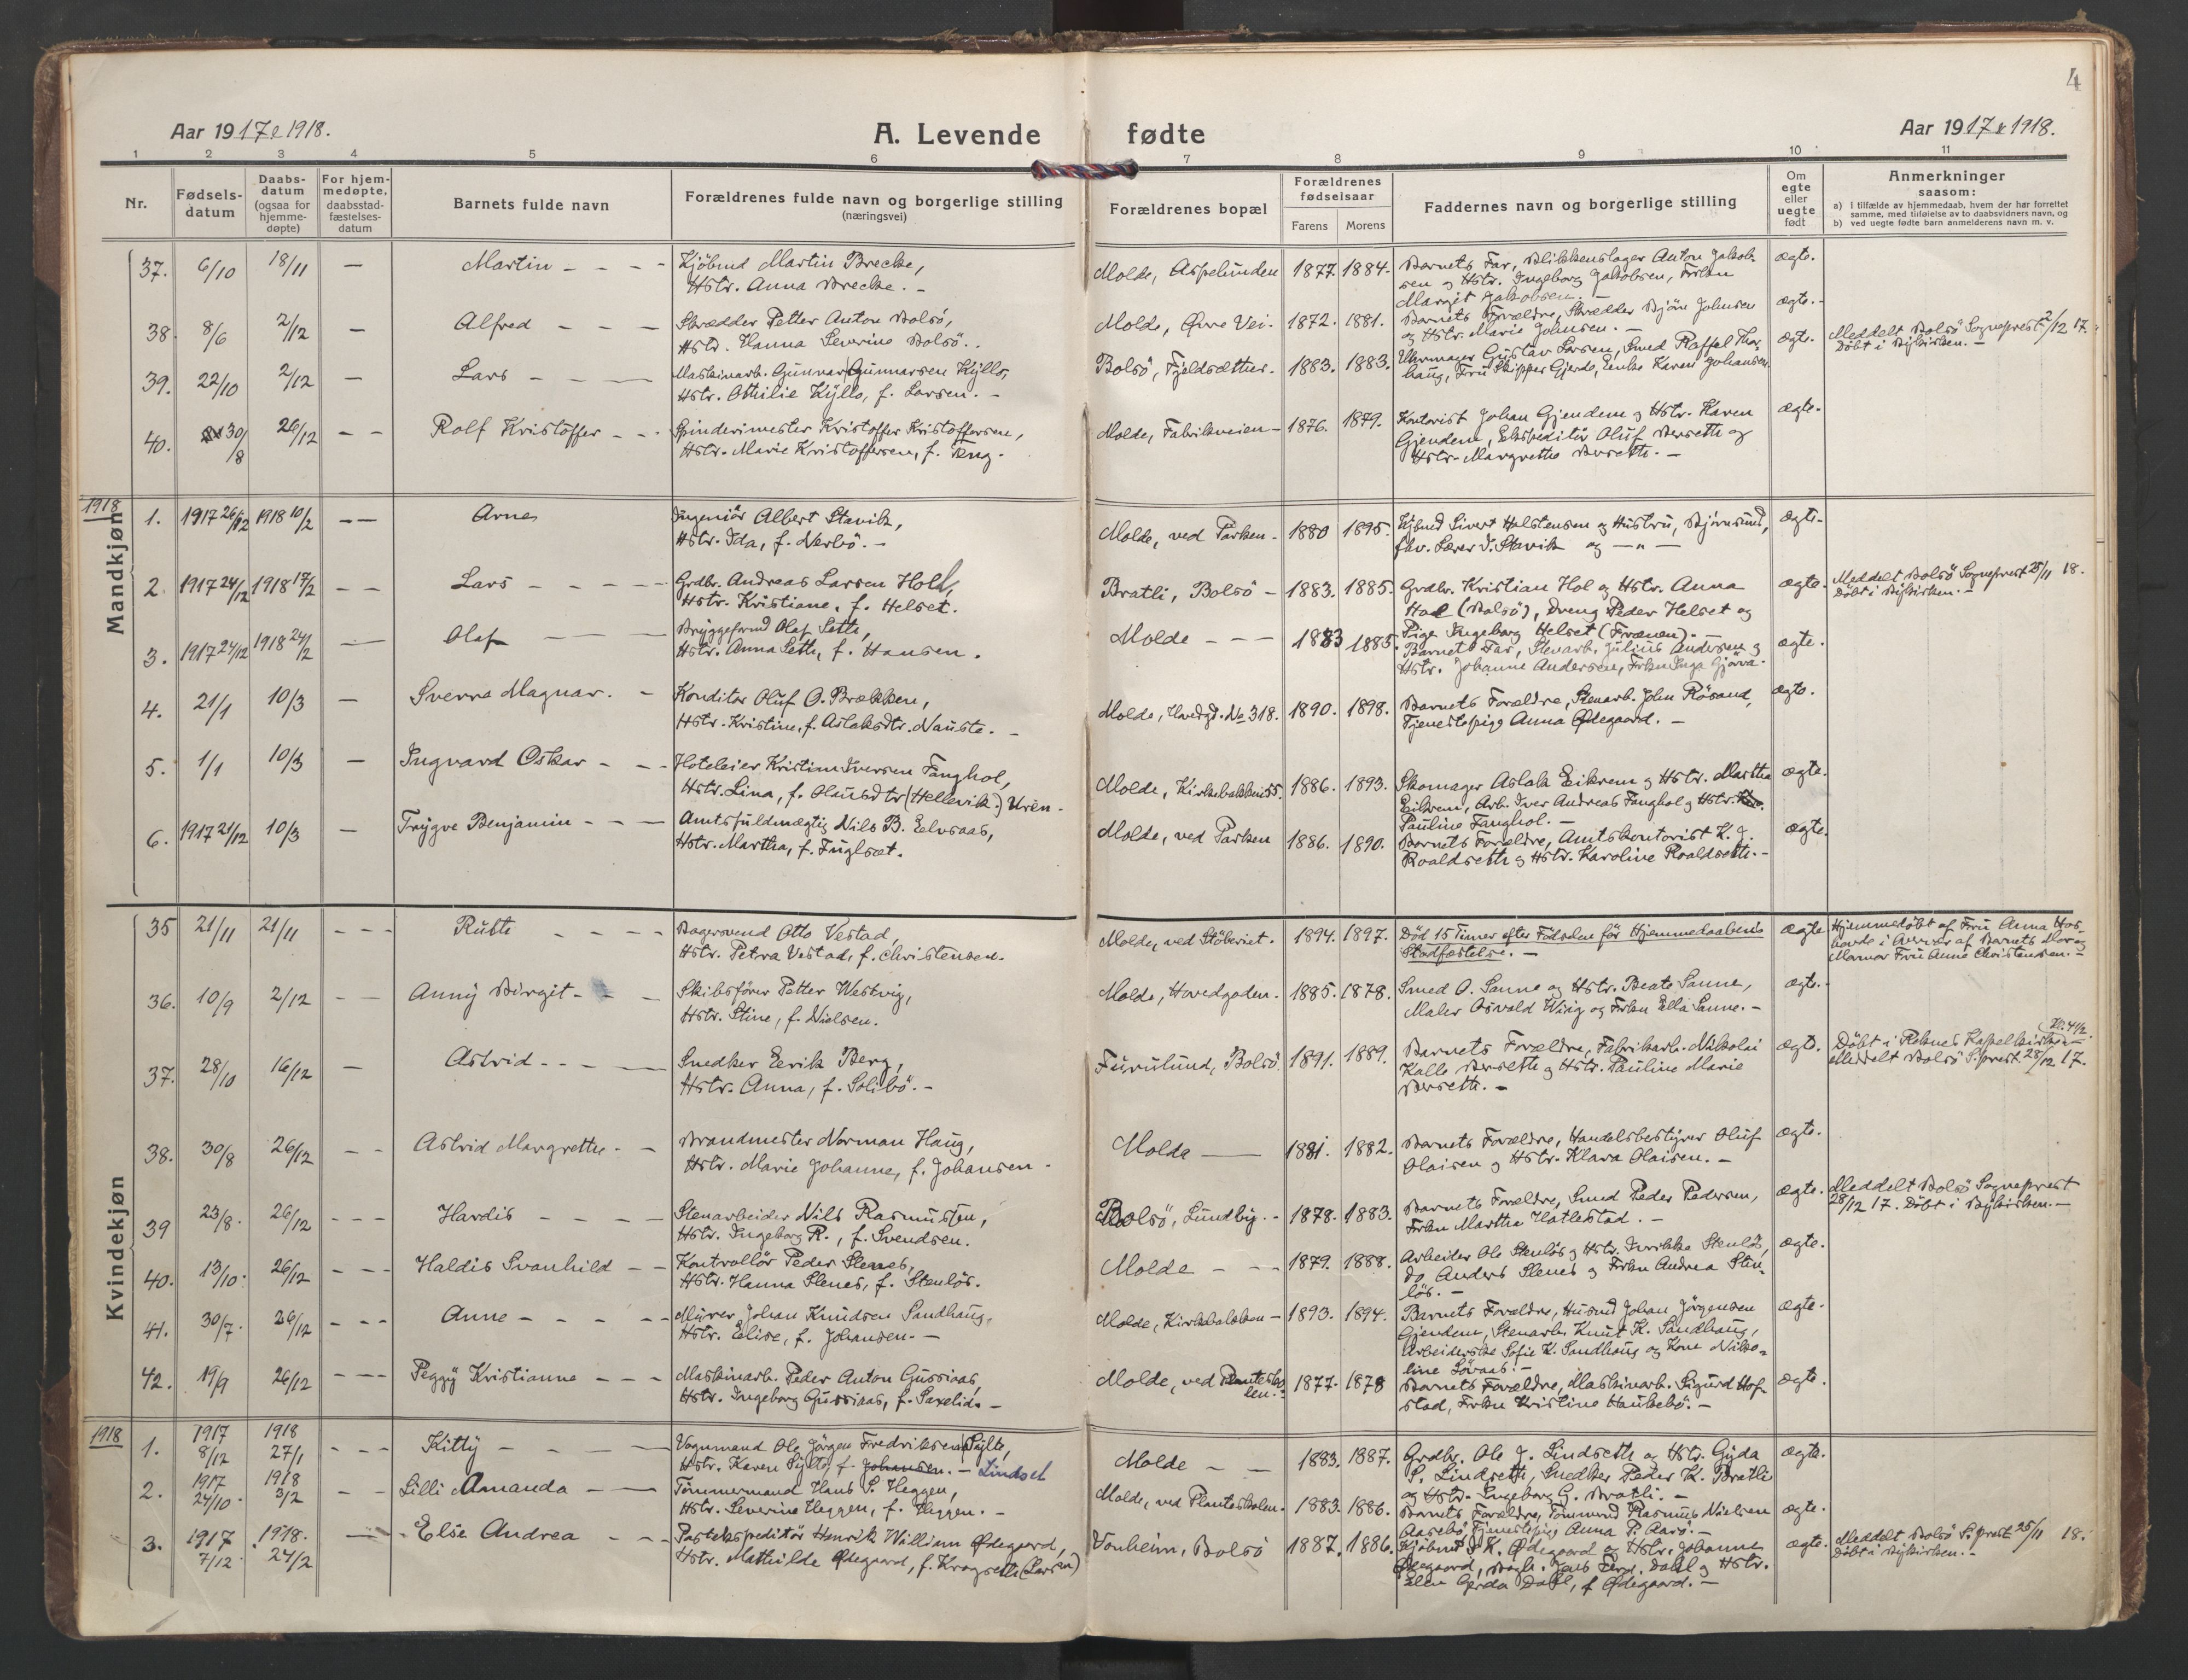 4
Aar 1917 & 1918.
A. Levende fødte
Aar 1917 & 1918.
1 2 3 4 5 6 7 8 9 10 11
Nr.
Fødsels-
datum
Daabs-
datum
(ogsaa for
hjemme-
døpte)
For hjem-
medøpte,
daabsstad-
fæstelses-
datum
Barnets fulde navn
Forældrenes fulde navn og borgerlige stilling
(næringsvei)
Forældrenes bopæl
Forældrenes
fødselsaar
Farens Morens
Faddernes navn og borgerlige stilling
Om
egte
eller
uegte
født
Anmerkninger
saasom:
a) I tilfælde av hjemmedaab, hvem der har forrettet
samme, med tilføielse av to daabsvidners navn, og
b) ved uegte fødte barn anmelderens navn m. v.
Mandkjøn
37. 6/10 18/11 — Martin
Kjöbmd Martin Brecke,
Hstr. Anna Brecke. —
Molde, Aspelunden 1877. 1884.
Barnets Far, Blikkenslager Anton Jakob-
sen og Hstr. Ingeborg Jakobsen, Frkn
Margit Jakobsen. —
ægte.
38. 8/6 2/12 — Alfred
Skrædder Petter Anton Bolsö,
Hstr. Hanna Severine Bolsö.
Molde, Øvre Vei. 1872. 1881.
Barnets Forældre, Skrædder Bjön Johnsen
og Hstr. Marie Johnsen. —
ægte.
39. 22/10 2/12 — Lars
Maskinarb. Gunnar Gunnarsen Kyllo,
Hstr. Othilie Kyllo, f. Larsen. —
Bolsö, Fjeldsæther. 1883. 1883.
Uhrmager Gustav Larsen, Smed Raffel Thor-
haug, Fru Skipper Gjerde, Enke Karen Johansen.
ægte.
Meddelt Bolsö Sogneprest 2/12 17.
Döbt i Bykirken. —
40. 30/8 26/12 — Rolf Kristoffer
Spinderimester Kristoffer Kristoffersen,
Hstr. Marie Kristoffersen, f. Eng.
Molde, Fabrikveien 1876. 1879.
Kontorist Johan Gjendem og Hstr. Karen
Gjendem, Ekspeditör Oluf Berseth og
Hstr. Margrethe Berseth. —
ægte.
1918
1. 1917 26/12 1918 10/2 — Arne
Ingeniör Albert Stavik,
Hstr. Ida, f. Nerbö. —
Molde, ved Parken 1880 1895.
Kjbmd Sivert Halstensen og Hustru, Björnsund,
fhv. Lærer I. Stavik og — " —
Ægte.
2. 1917 24/12 1918 17/2 — Lars
Grdbr. Andreas Larsen Hol,
Hstr. Kristiane, f. Helset.
Bratli, Bolsö 1883. 1885.
Grdbr. Kristian Hol og Hstr. Anna
Hol (Bolsö), Dreng Peder Helset og
Pige Ingeborg Helset (Frænen). —
ægte.
Meddelt Bolsö Sogneprest 25/11 18.
Döbt i Bykirken. —
3. 1917 24/12 1918 24/2 — Olaf
Bryggeformd Olaf Seth,
Hstr. Anna Seth, f. Hansen.
Molde 1883 1885.
Barnets Far, Stenarb. Julius Andersen og
Hstr. Johanne Andersen, Frkn Inga Gjörva.
ægte.
4. 21/1 10/3 — Sverre Magnar.
Konditor Oluf O. Brækken,
Hstr. Kristine, f. Aslaksdtr. Nauste. —
Molde, Hovedgd. No 318. 1890. 1898.
Barnets Forældre, Stenarb. John Rösand,
Tjenestepige Anna Ødegaard. —
ægte.
5. 1/1 10/3 — Ingvard Oskar
Hoteleier Kristian Iversen Fanghol,
Hstr. Lina, f. Olausdtr (Hellevik) Uren.
Molde, Kirkebakken 55. 1886. 1893.
Skomager Aslak Eikrem og Hstr. Martha
Eikrem, Arb. Iver Andreas Fanghol og Hstr.
Pauline Fanghol. —
ægte.
6. 1917 21/12 10/3 — Trygve Benjamin
Amtsfuldmægtig Nils B. Eelvsaas,
Hstr. Martha, f. Fuglset.
Molde, ved Parken 1886. 1890.
Barnets Forældre, Amtskontorist K. J.
Roaldseth og Hstr. Karoline Roaldseth. —
ægte.
Kvindekjøn
35 21/11 21/11 — Ruth
Bagersvend Otto Vestad,
Hstr. Petra Vestad, f. Christensen.
Molde, ved Stöberiet. 1894. 1897.
Död 15 Timer efter Födselen för Hjemmedaabens
Stadfæstelse. —
ægte
Hjemmedöbt af Fru Anna Hos-
i Nærvær af Barnets Mor og
Mormor Fru Anne Christensen. —
36. 10/9 2/12 — Anny Birgit
Skibsförer Petter Westvig,
Hstr. Stine, f. Nielsen.
Molde, Hovedgaden. 1885. 1878.
Smed O. Sanne og Hstr. Beate Sanne,
Maler Osvald Wiig og Frkn Ella Sanne. —
ægte.
37. 28/10 16/12 — Astrid
Snedker Eerik Berg,
Hstr. Anna, f. Solsbö. —
Furulund, Bolsö 1891. 1889.
Barnets Forældre, Fabrikarb. Nikolai
Kalle Berseth og Hstr. Pauline Marie
Berseth. —
ægte.
Kl. 4 1/2.
Döbt i Reknes Kapelkirke —
Meddelt Bolsö S.prest 28/12 17.
38. 30/8 26/12 — Astrid Margrethe
Brandmester Norman Haug,
Hstr. Marie Johanne, f. Johansen.
Molde 1881. 1882.
Barnets Forældre, Handelsbestyrer Oluf
Olaisen og Hstr. Klara Olaisen. —
ægte.
39 23/8. 26/12 — Hardis
Stenarbeider Nils Rasmussen,
Hstr. Ingeborg R., f. Svendsen.
Bolsö, Lundby. 1878. 1883.
Barnets Forældre, Smed Peder Pedersen,
Frkn Martha Hatlestad. —
ægte.
Meddelt Bolsö Sogneprest
28/12 17. Döbt i Bykirken. —
40. 13/10. 26/12 — Haldis Svanhild
Kontrollör Peder Slenes,
Hstr. Hanna Slenes, f. Stenlös.
Molde 1879. 1888.
Arbeider Ole Stenlös og Hstr. Stenlös,
do. Anders Slenes og Frkn Andrea Sten-
lös. —
ægte.
41. 30/7. 26/12 — Anne
Murer Johan Knudsen Sandhaug,
Hstr. Elise, f. Johansen. —
Molde, Kirkebakken 1893. 1894.
Barnets Forældre, Husmd Johan Jörgensen
Gjendem, Stenarb. Knut K. Sandhaug,
Arbeiderske Sofie K. Sandhaug og Kone Niko-
line Söraas. —
ægte.
42. 19/9 26/12 — Peggy Kristianne
Maskinarb. Peder Anton Gussiaas,
Hstr. Ingeborg Gussiaas, f. Saxelid. —
Molde, ved Plantesko-
len. 1877. 1878
Barnets Forældre, Maskinarb. Sigurd Hof-
stad, Frkn Kristine Haukebö. —
ægte.
1918
1. 1917 8/12 1918 27/1 — Kitty
Vognmand Ole Jörgen Fredriksen Sylte,
Hstr. Karen Sylte, f. Johansen. — Lindset
Molde 1883. 1887.
Grdbr. Ole J. Lindseth og Hstr. Gyda
P. Lindseth, Snedker Peder K. Bratli
og Hstr. Ingeborg G. Bratli. —
ægte.
2. 1917 24/10. 1918 3/2 — Lilli Amanda
Tömmermand Hans P. Heggen,
Hstr. Severine Heggen, f. Heggen. —
Molde, ved Planteskolen. 1883. 1886.
Barnets Forældre, Tömmermd Rasmus Nielsen
Aasebö, Tjenestepige Anna P. Aarö. —
ægte.
3. 1917 7/12. 1918. 24/2 — Else Andrea
Postekspeditör Henrik William Ødegaard,
Hstr. Mathilde Ødegaard, f. Kragseth (Larsen)
Vonheim, Bolsö 1887. 1886.
Kjöbmd I. K. Ødegaard og Hstr. Johanne
Ødegaard, Jens Ferd. Dahl og Hstr.
Ellen Gerda Dahl, f. Ødegaard. —
ægte.
Meddelt Bolsö S.prest 25/11 18.
Döbt i Bykirken. —